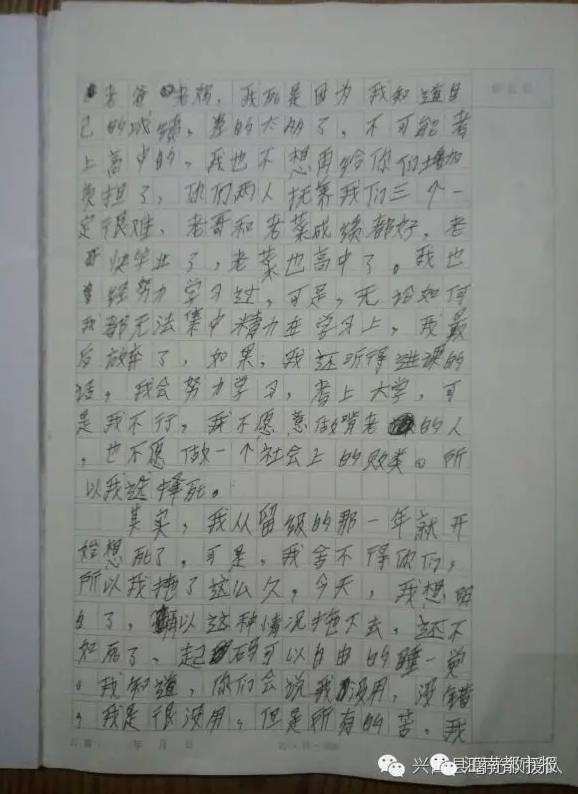 老爸老妈，我死是因为我知道自
己的成绩，差的太多了，不可能考
上高中的，我也不想再给你们增加
负担了，你们两人抚养我们三个一
定很难，老哥和老菜成绩都好，老
哥快毕业了，老菜也高中了。我也
经努力学习过，可是，无论如何
我都无法集中精力在学习上，我最
后放弃了，如果，我还听得进课的
话，我会努力学习，考上大学，可
是我不行，我不愿意做啃老的人
，也不愿做一个社会上的败类。所
以我选择死。
其实，我从留级的那一年就开
始想死了，可是，我舍不得你们，
所以我拖了这么久，今天，我想明
白了，以这种情况拖下去，还不
如死了，起码可以自由的睡一觉
。我知道，你们会说我没用，没错
，我是很没用，但是所有的苦，我
年 月 日
江南都市报